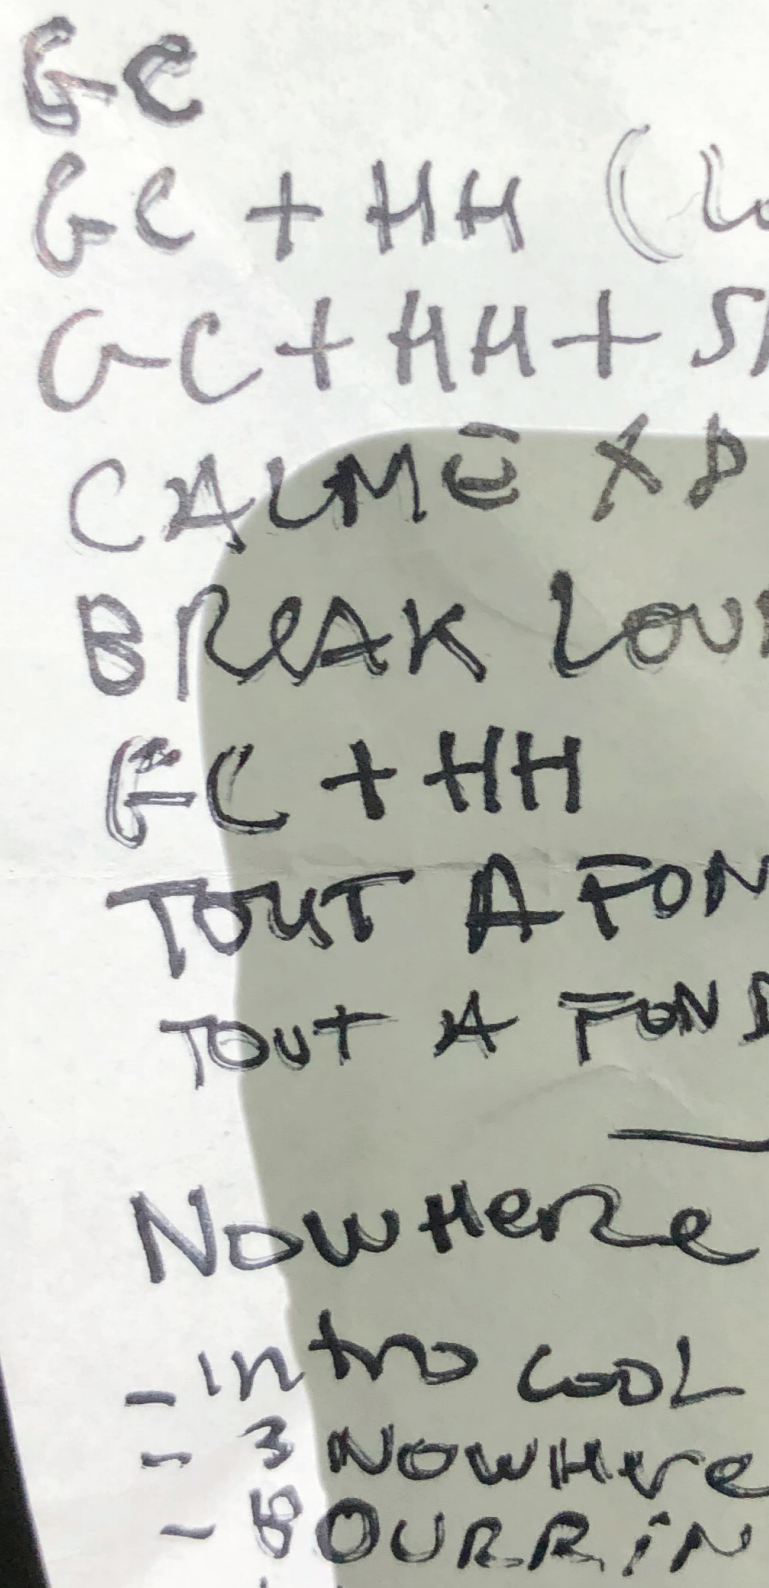 GC
GC + HH (Lo
GC + HH + S
CALME X
BREAK LOU
GC + HH
TOUT A FON
TOUT A FOND
NOWHERE
- intro COOL
- 3 NOWHERE
- BOURRIN